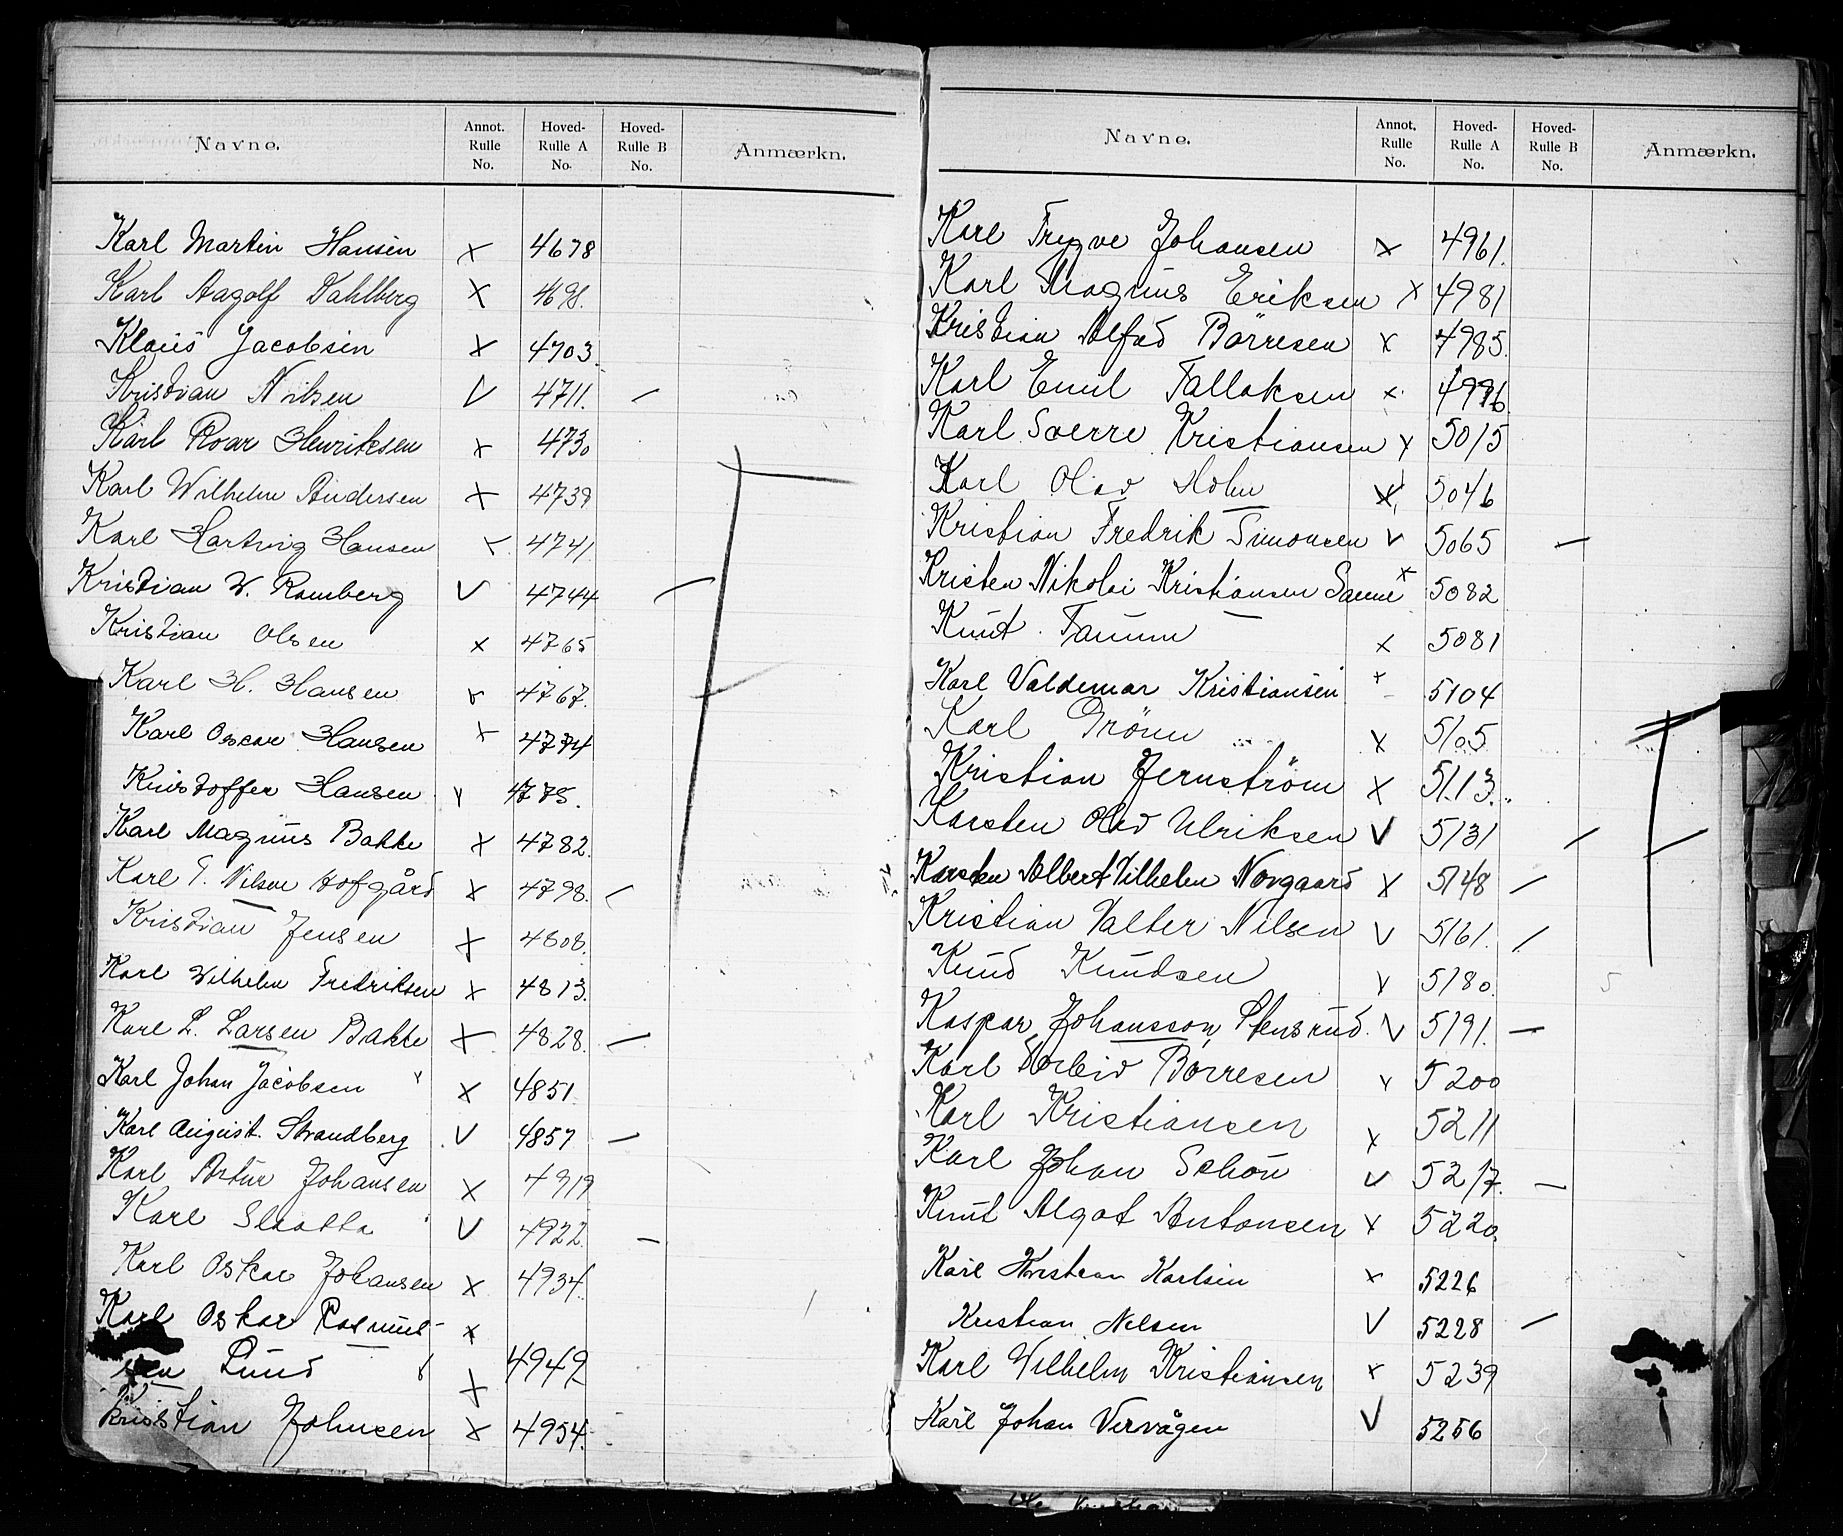 Navne. Annot. Rulle No. Hoved-Rulle A No. Hoved-Rulle B No. Anmærkn.
Karl Martin Hansen × 4678
Karl Aagolf Dahlberg × 4698.
Klaus Jacobsen × 4703.
Kristian Nilsen V 4711. —
Karl Roar Henriksen × 4730
Karl Wilhelm Andersen × 4739
Karl Hartvig Hansen × 4741.
Kristian W. Ramberg V 4744 —
Kristian Olsen × 4765
Karl H. Hansen × 4767.
Karl Oscar Hansen × 4774
Kristoffer Hansen × 4775.
Karl Magnus Bakke × 4782.
Karl T. Nilsen Hofgård × 4798. —
Kristian Jensen × 4808.
Karl Wilhelm Fredriksen × 4813.
Karl L. Larsen Bakke × 4828. —
Karl Johan Jacobsen × 4851
Karl August. Strandberg V 4857 —
Karl Artur Johansen × 4919
Karl Slaatta V 4922. —
Karl Oskar Johansen × 4934.
Karl Oskar Rasmus- ×
sen Lund × 4942
Kristian Johnsen × 4954.
Navne. Annot. Rulle No. Hoved-Rulle A No. Hoved-Rulle B No. Anmærkn.
Karl Trygve Johansen × 4961.
Karl Magnus Eriksen × 4981
Kristian Alfred Börresen × 4985.
Karl Emil Tallaksen × 4996.
Karl Sverre Kristiansen × 5015
Karl Olav Holm × 5046
Kristian Fredrik Simonsen V 5065 —
Kristen Nikolai Kristiansen Sanne × 5082
Knut Tanum × 5081
Karl Valdemar Kristiansen × 5104
Karl Grönn × 5105
Kristian Jernström × 5113.
Karsten Olav Ulriksen V 5131 —
Karsten Albert Vilhelm Norgaard × 5148 —
Kristian Valter Nilsen V 5161. —
Knud Knudsen × 5180.
Kaspar Johansson Stensrud. V 5191. —
Karl Torleiv Börresen × 5200
Karl Kristiansen × 5211
Karl Johan Schön V 5217. —
Knut Algot Antonsen × 5220.
Karl Kristian Karlsen × 5226
Kristian Nilsen V 5228 —
Karl Vilhelm Kristiansen × 5239
Karl Johan Vervågen V 5256